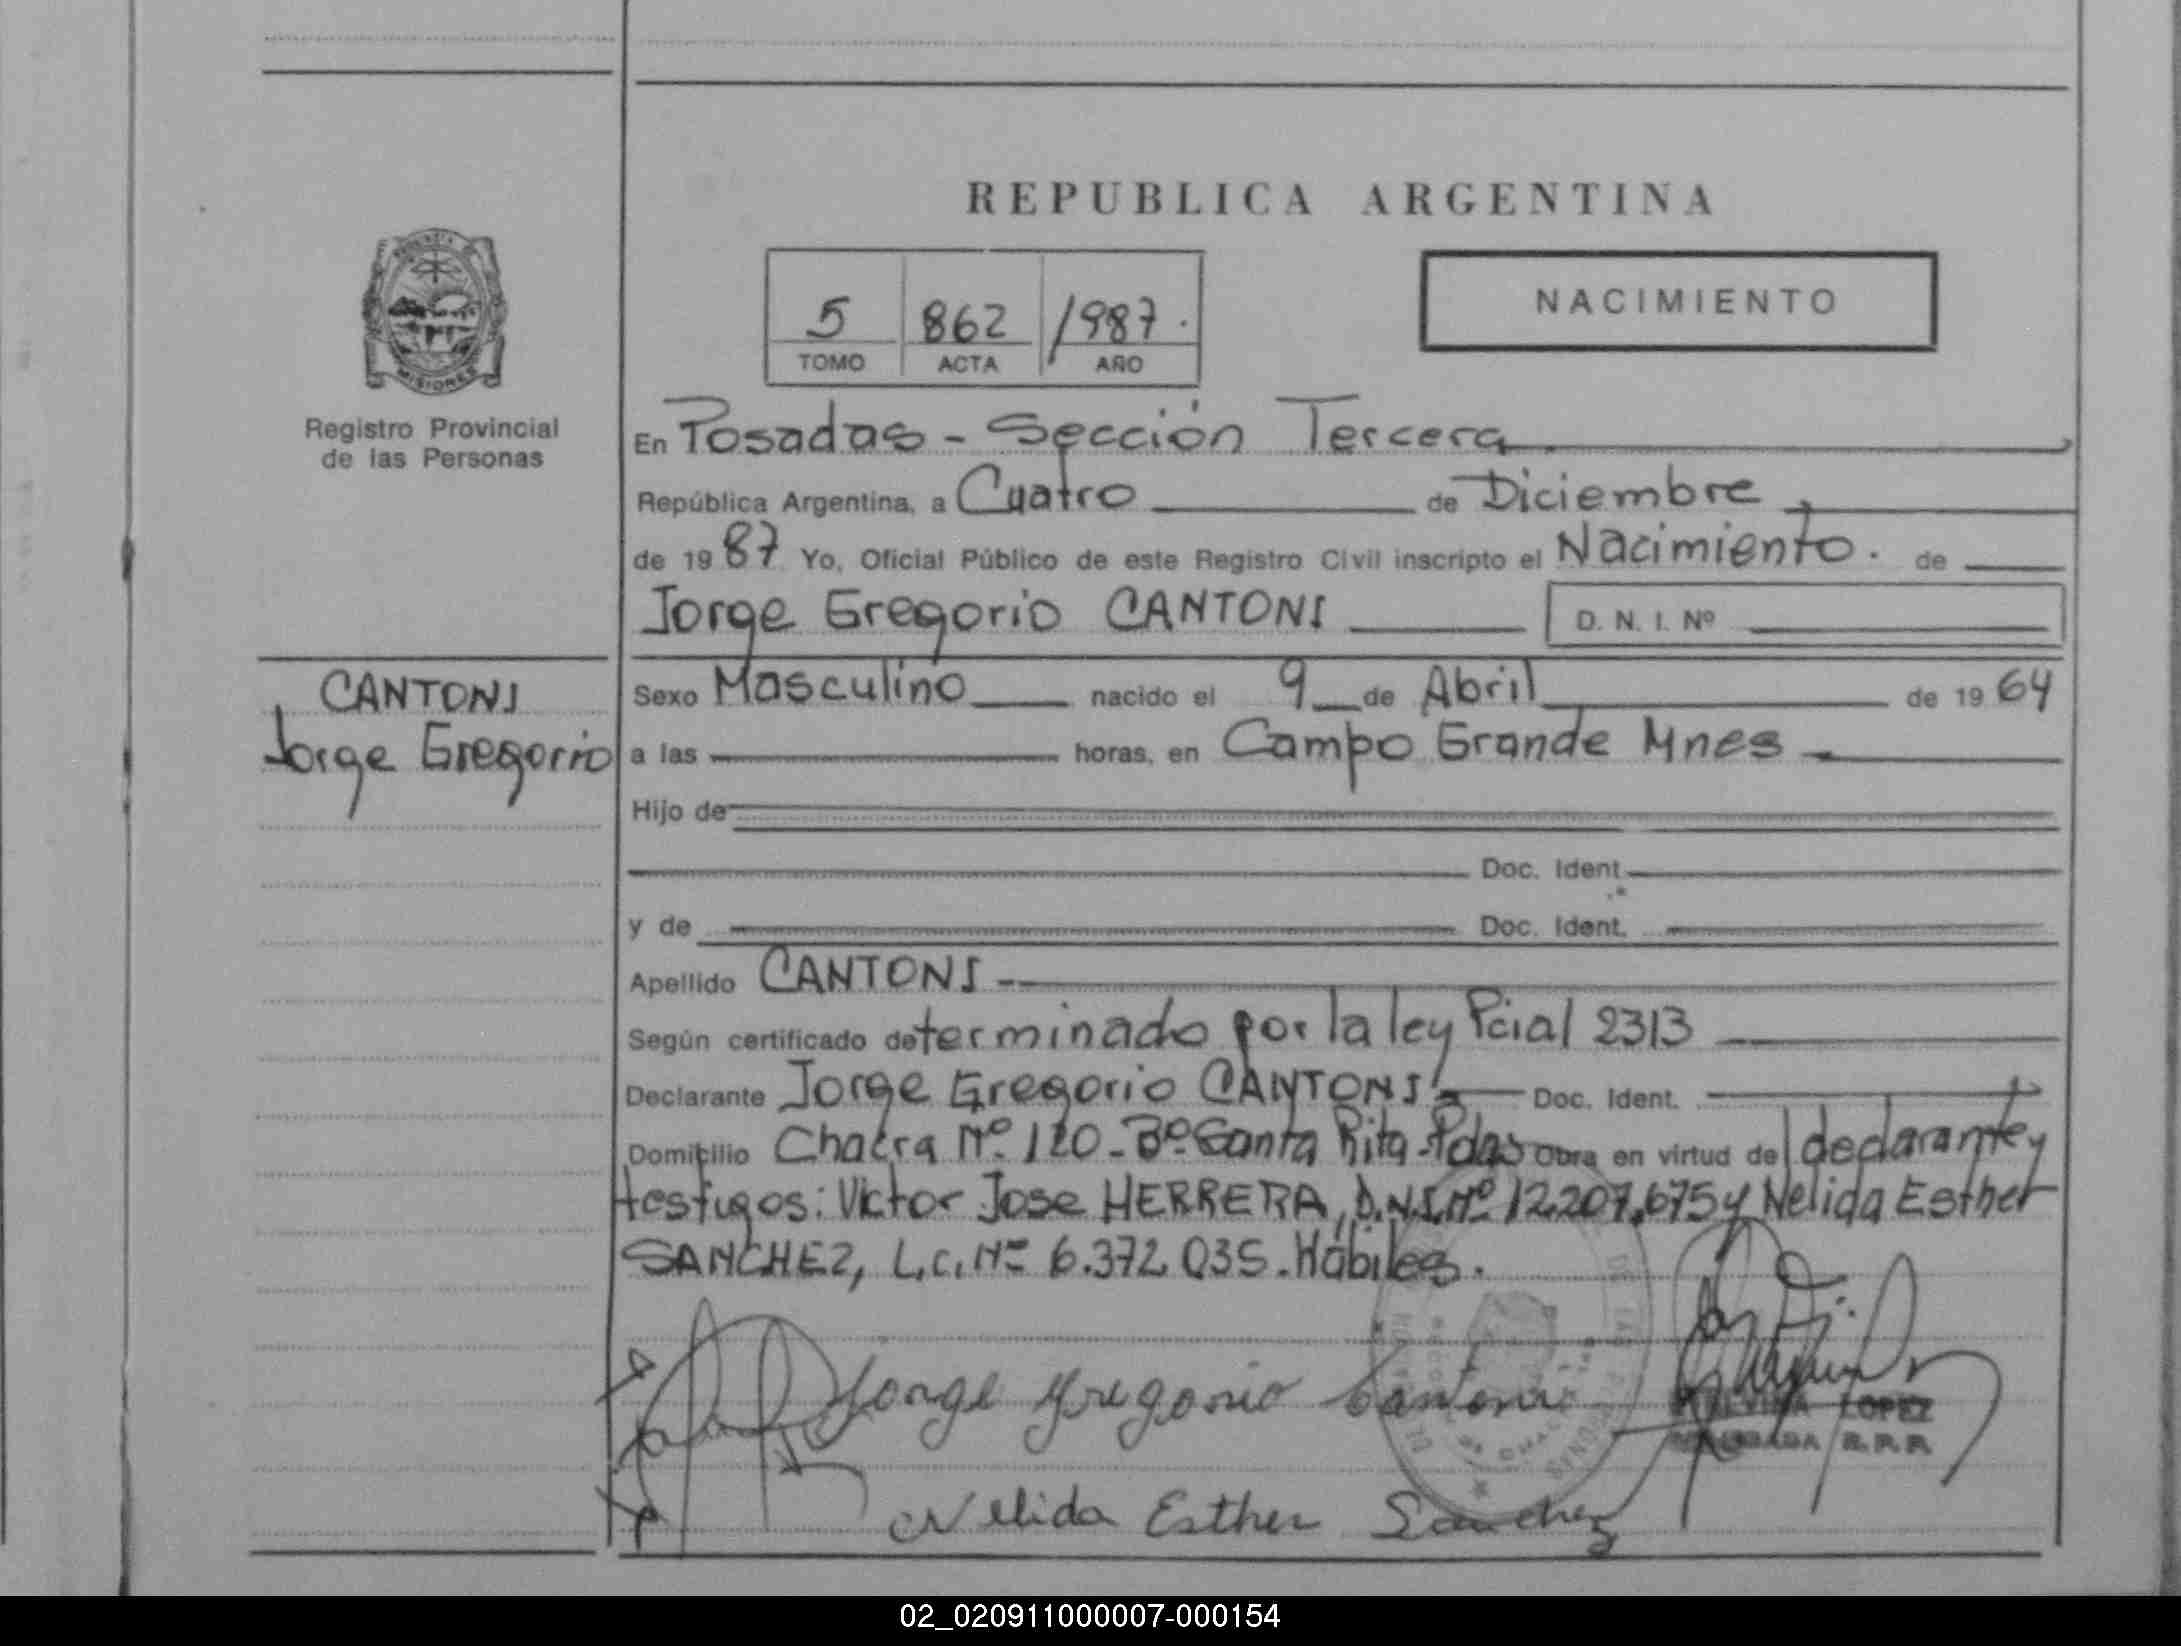 REPUBLICA ARGENTINA
NACIMIENTO
5 862 1987.
TOMO ACTA AÑO
MISIONES
Registro Provincial
de las Personas
En Posadas - Sección Tercera
República Argentina, a Cuatro de Diciembre
de 19 87 Yo, Oficial Público de este Registro Civil inscripto el Nacimiento. de
Jorge Gregorio CANTONI D. N. I. Nº
CANTONI
Jorge Gregorio
Sexo Masculino nacido el 9 de Abril de 19 64
a las horas, en Campo Grande Mnes
Hijo de
Doc. Ident.
y de Doc. Ident.
Apellido CANTONI
Según certificado determinado por la ley Pcial 2313
Declarante Jorge Gregorio CANTONI Doc. Ident.
Domicilio Chacra Nº 120 - Bº Santa Rita - Pdas Obra en virtud de declarante y
testigos: Victor Jose HERRERA, D.N.I. Nº 12.207.675 y Nelida Esther
SANCHEZ, L.C. Nº 6.372.035. Hábiles.
Jorge Gregorio Cantoni
LOPEZ
R.P.P.
Nelida Esther Sanchez
02_020911000007-000154